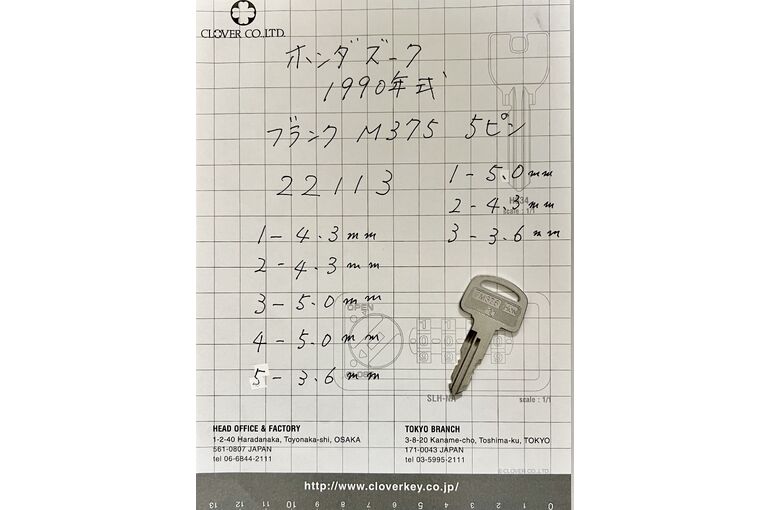 CLOVER CO.LTD.
ホンダズーク
1990年式
ブランク M375 5ピン
22113
1-5.0mm
2-4.3mm
3-3.6mm
scale : 1/1
1-4.3mm
2-4.3mm
3-5.0mm
4-5.0mm
5-3.6mm
OPEN
CLOSE
SLH-NA
scale : 1/1
HEAD OFFICE & FACTORY
1-2-40 Haradanaka, Toyonaka-shi, OSAKA
561-0807 JAPAN
tel 06-6844-2111
TOKYO BRANCH
3-8-20 Kaname-cho, Toshima-ku, TOKYO
171-0043 JAPAN
tel 03-5995-2111
© CLOVER CO.,LTD.
http://www.cloverkey.co.jp/
13 12 11 10 9 8 7 6 5 4 3 2 1 0